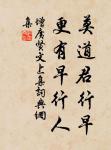 莫道君行早
更有早行人
增廣賢文上集詞典網
集